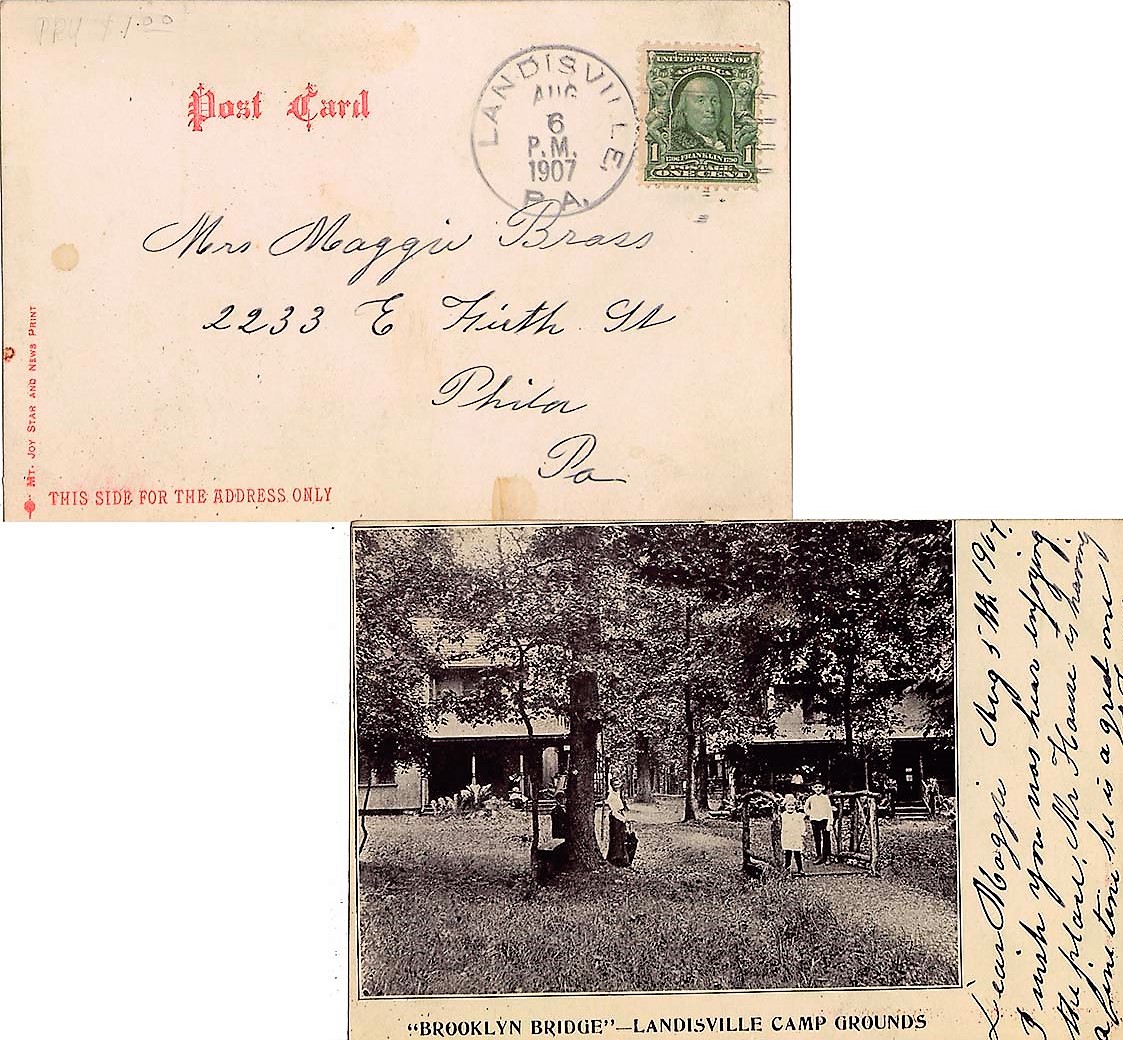 PRU $1.00
Post Card
LANDISVILLE
AUG
6
P.M.
1907
PA.
UNITED STATES OF
AMERICA
1 FRANKLIN 1
POSTAGE
ONE CENT
Mrs Maggie Brass
2233 E Firth St
Phila
Pa
MT. JOY STAR AND NEWS PRINT
THIS SIDE FOR THE ADDRESS ONLY
Aug 5th 1907.
Dear Maggie
I wish you was hear enjoying
the place, Mr House is having
a fine time he is a great one
"BROOKLYN BRIDGE"—LANDISVILLE CAMP GROUNDS